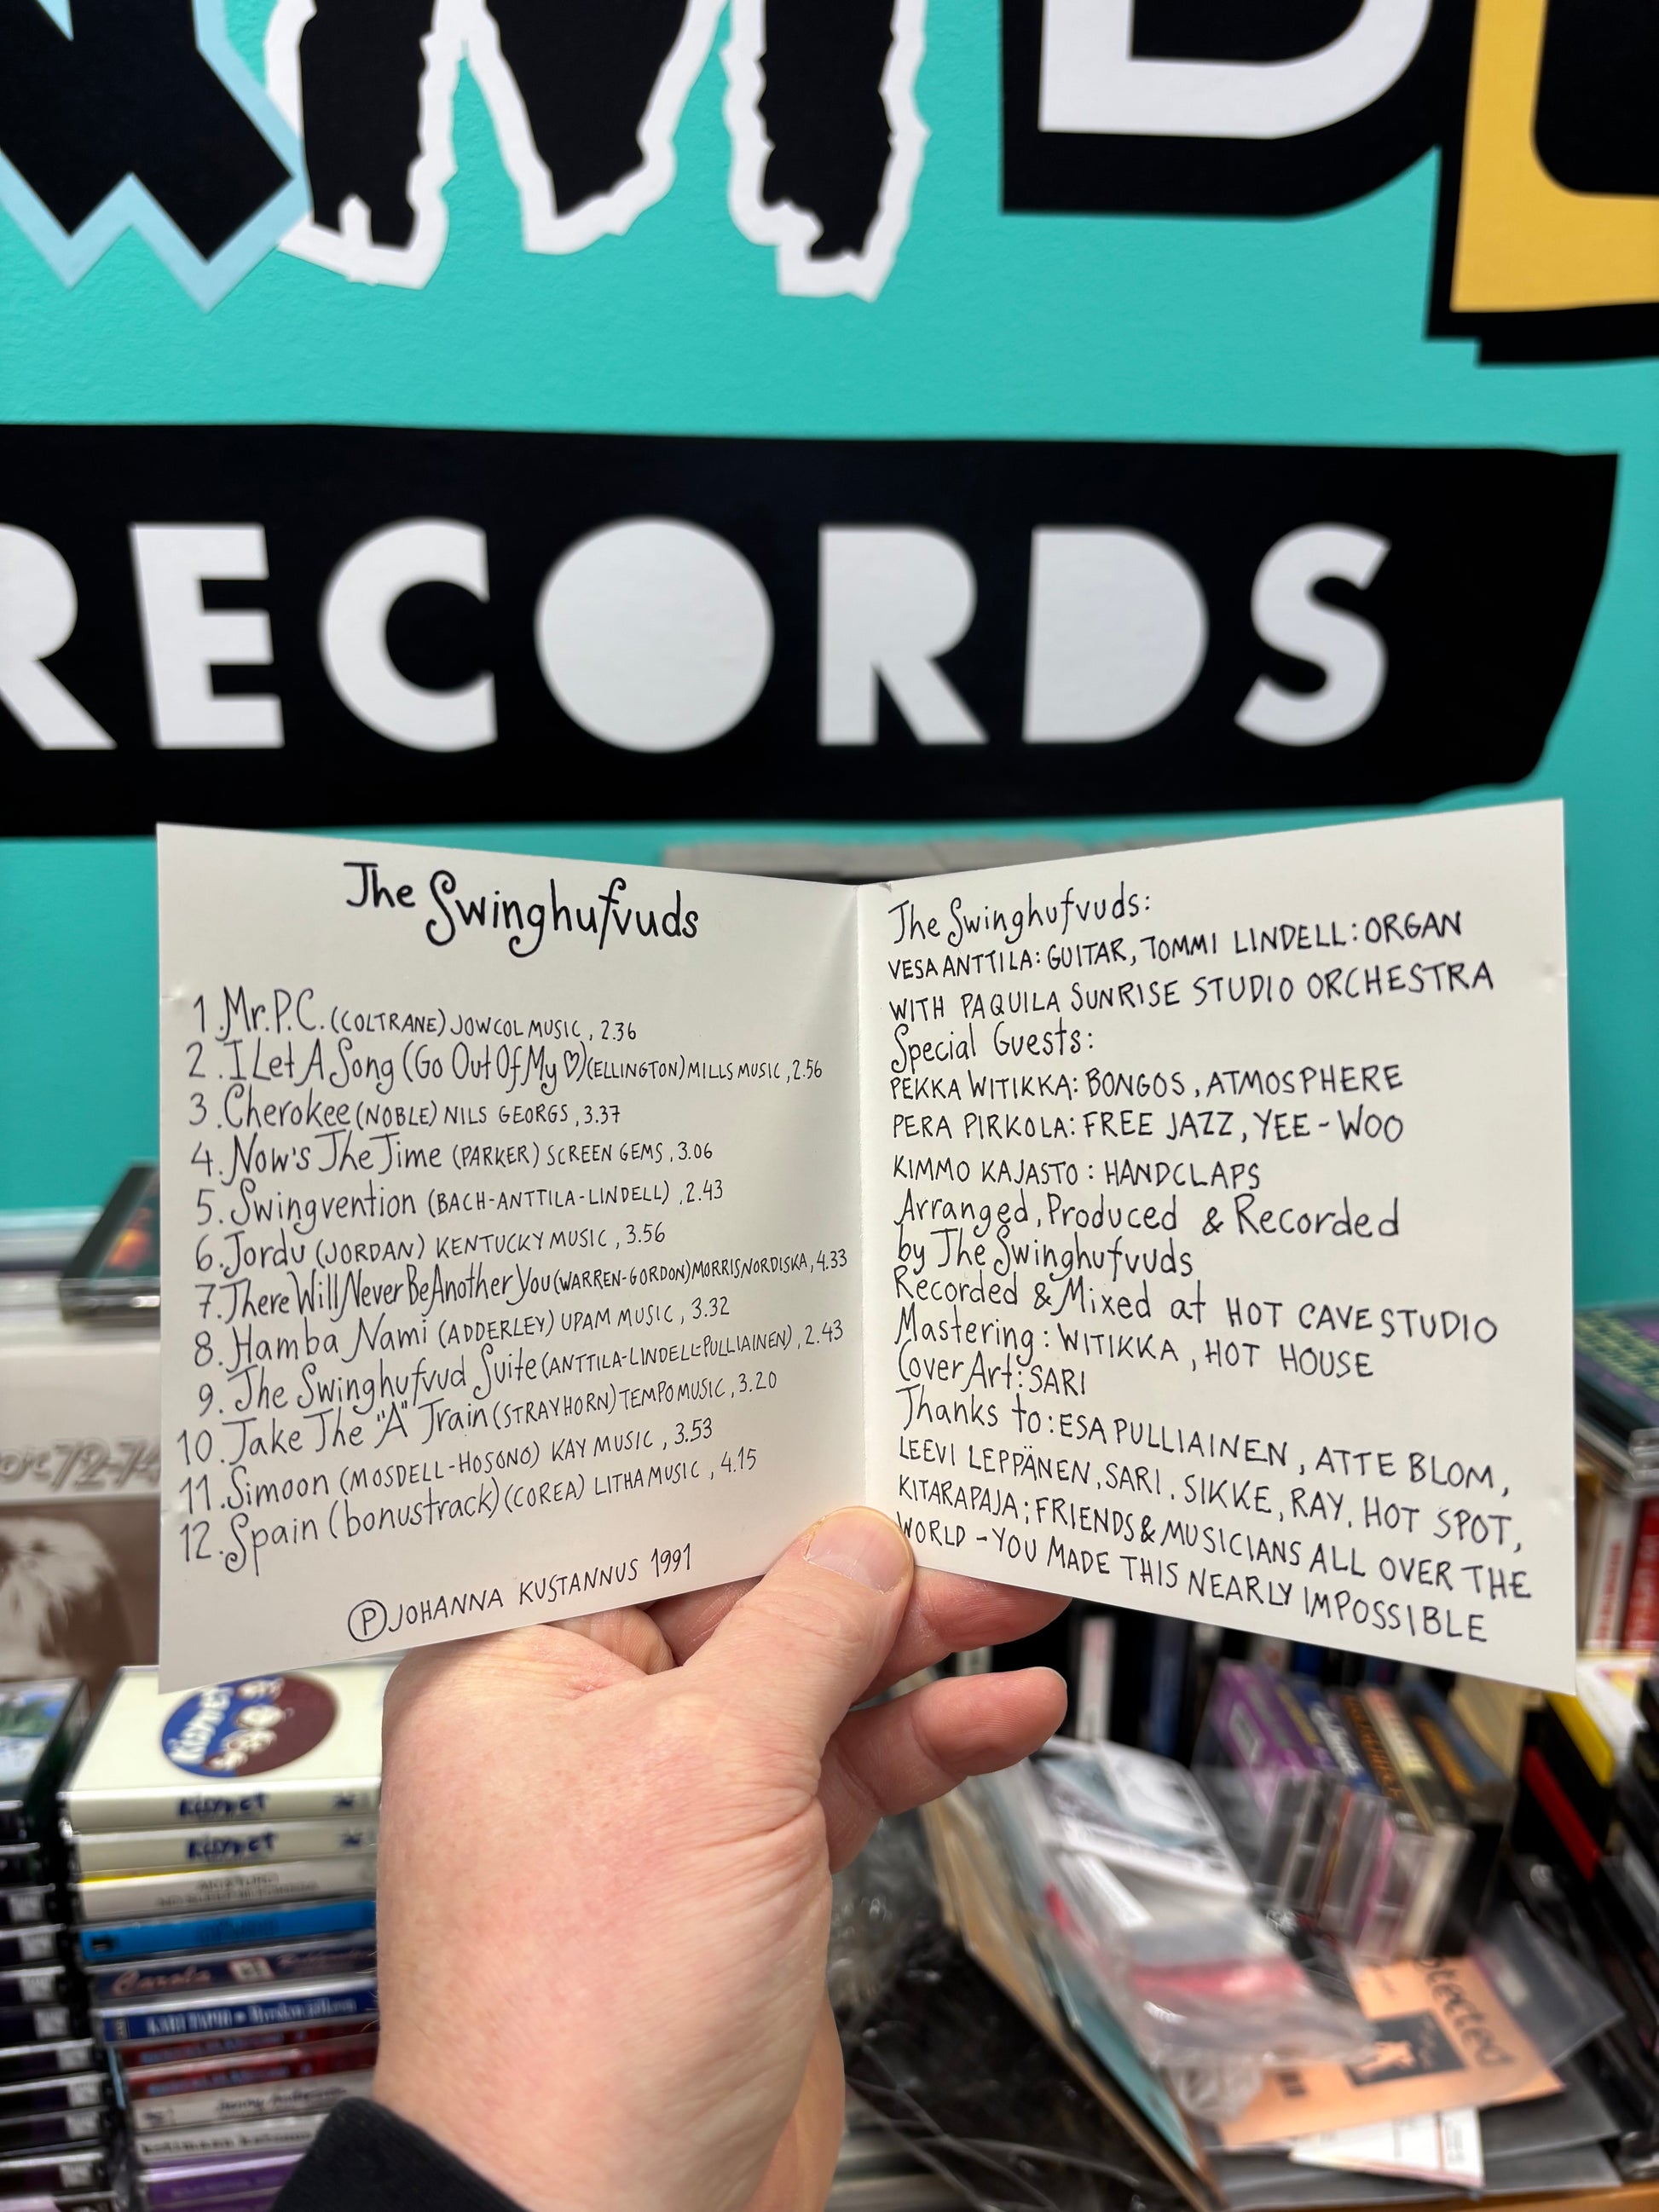 RECORDS
The Swinghufvuds
1. Mr. P.C. (COLTRANE) JOWCOL MUSIC, 2.36
2. I Let A Song (Go Out Of My ♡) (ELLINGTON) MILLS MUSIC, 2.56
3. Cherokee (NOBLE) NILS GEORGS, 3.37
4. Now's The Time (PARKER) SCREEN GEMS, 3.06
5. Swingvention (BACH-ANTTILA-LINDELL), 2.43
6. Jordu (JORDAN) KENTUCKY MUSIC, 3.56
7. There Will Never Be Another You (WARREN-GORDON) MORRIS NORDISKA, 4.33
8. Hamba Nami (ADDERLEY) UPAM MUSIC, 3.32
9. The Swinghufvud Suite (ANTTILA-LINDELL-PULLIAINEN), 2.43
10. Take The "A" Train (STRAYHORN) TEMPO MUSIC, 3.20
11. Simoon (MOSDELL-HOSONO) KAY MUSIC, 3.53
12. Spain (bonustrack) (COREA) LITHA MUSIC, 4.15
Ⓟ JOHANNA KUSTANNUS 1991
The Swinghufvuds:
VESA ANTTILA: GUITAR, TOMMI LINDELL: ORGAN
WITH PAQUILA SUNRISE STUDIO ORCHESTRA
Special Guests:
PEKKA WITIKKA: BONGOS, ATMOSPHERE
PERA PIRKOLA: FREE JAZZ, YEE-WOO
KIMMO KAJASTO: HANDCLAPS
Arranged, Produced & Recorded
by The Swinghufvuds
Recorded & Mixed at HOT CAVE STUDIO
Mastering: WITIKKA, HOT HOUSE
Cover Art: SARI
Thanks to: ESA PULLIAINEN, ATTE BLOM,
LEEVI LEPPÄNEN, SARI. SIKKE, RAY. HOT SPOT,
KITARAPAJA; FRIENDS & MUSICIANS ALL OVER THE
WORLD - YOU MADE THIS NEARLY IMPOSSIBLE
72-74